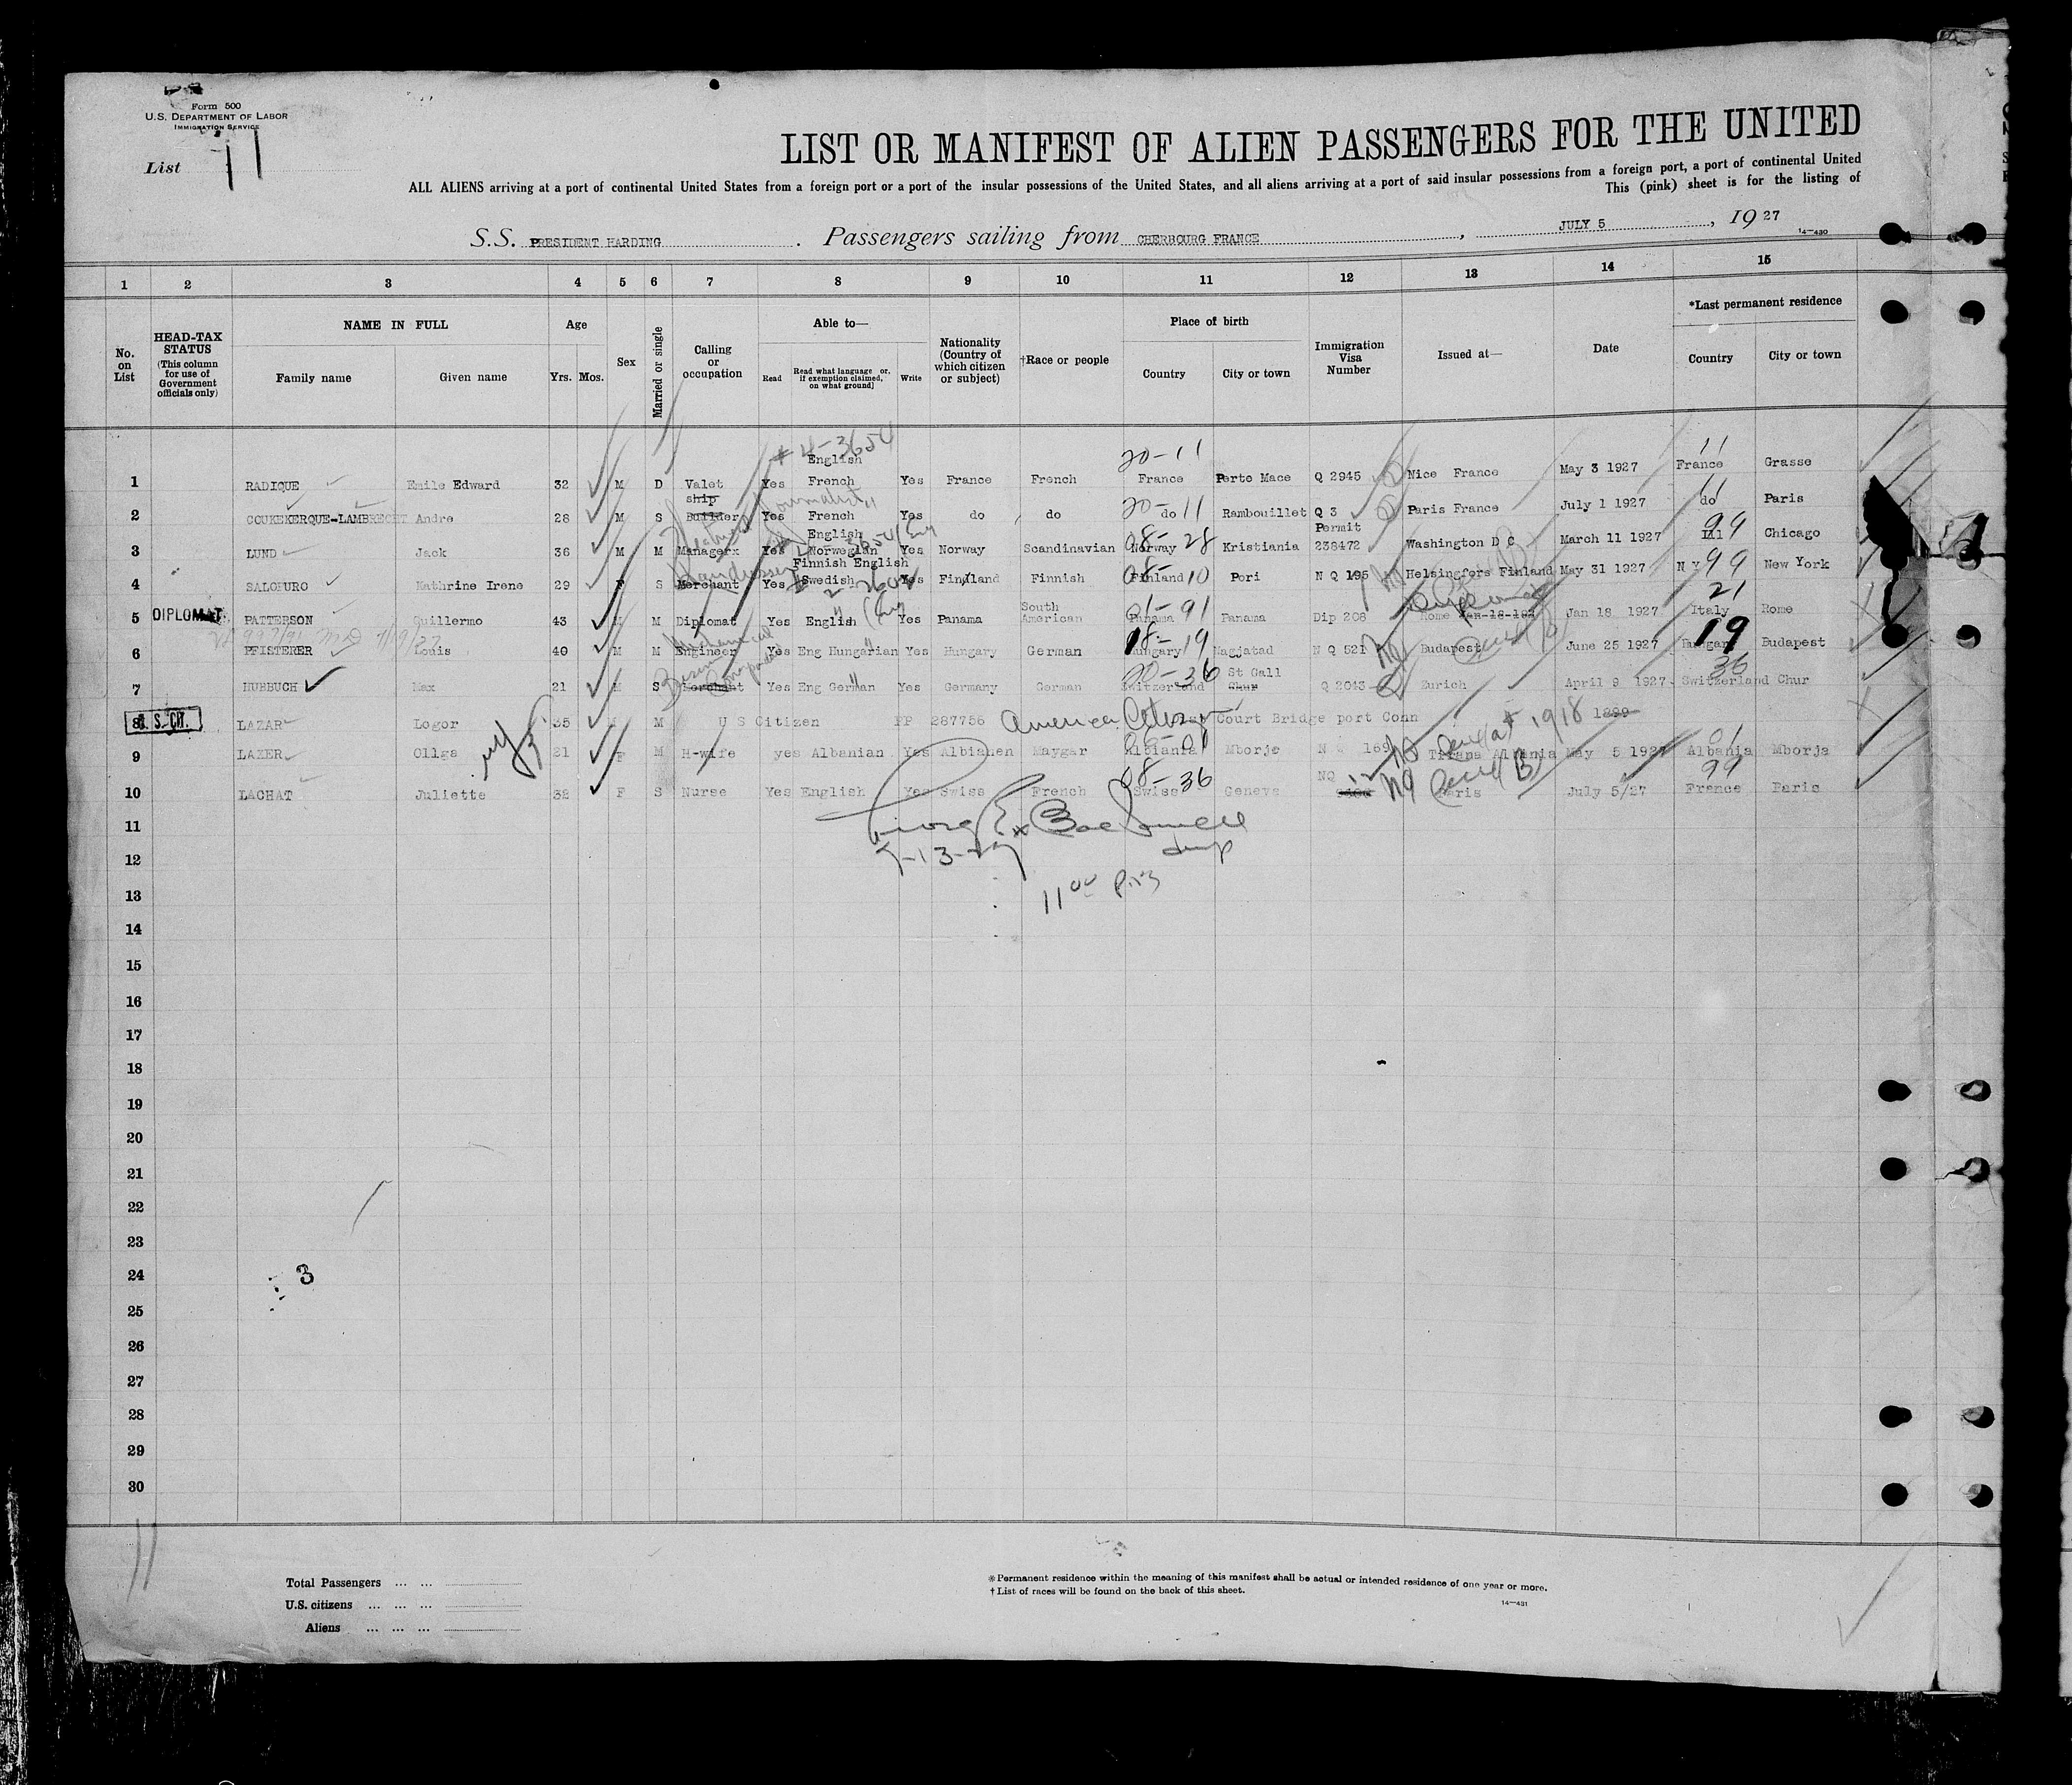 Form 500
U.S. DEPARTMENT OF LABOR
IMMIGRATION SERVICE
List 11
LIST OR MANIFEST OF ALIEN PASSENGERS FOR THE UNITED
ALL ALIENS arriving at a port of continental United States from a foreign port or a port of the insular possessions of the United States, and all aliens arriving at a port of said insular possessions from a foreign port, a port of continental United
This (pink) sheet is for the listing of
S.S. PRESIDENT HARDING. Passengers sailing from CHERBOURG FRANCE, JULY 5, 1927
14—430
1 2 3 4 5 6 7 8 9 10 11 12 13 14 15
No. on List
HEAD-TAX STATUS (This column for use of Government officials only)
NAME IN FULL
Family name Given name
Age
Yrs. Mos.
Sex
Married or single
Calling or occupation
Able to—
Read Read what language or, if exemption claimed, on what ground] Write
Nationality (Country of which citizen or subject)
†Race or people
Place of birth
Country City or town
Immigration Visa Number
Issued at—
Date
*Last permanent residence
Country City or town
# 4-3654
English 20-11 11
1 RADIQUE Emile Edward 32 M D Valet Yes French Yes France French France Porto Mace Q 2945 Nice France May 3 1927 France Grasse
ship Journalist 20-11 11
2 COUKEKERQUE-LAMBRECHT Andre 28 M S Builder Yes French Yes do do do Rambouillet Q 3 Paris France July 1 1927 do Paris
English Permit 08-28 99
3 LUND Jack 36 M M Managerx Yes Norwegian Yes Norway Scandinavian Norway Kristiania 238472 Washington D C March 11 1927 Ill Chicago
Finnish English 99
4 SALOEURO Kathrine Irene 29 F S Merchant Yes Swedish Yes Finland Finnish Finland 10 Pori N Q 195 Helsingfors Finland May 31 1927 N Y New York
DIPLOMAT South 01-91 21
5 PATTERSON Guillermo 43 M M Diplomat Yes English Yes Panama American Panama Panama Dip 208 Rome Jan-18-192 Jan 18 1927 Italy Rome
Mechanical 18-19 19
6 PFISTERER Louis 40 M M Engineer Yes Eng Hungarian Yes Hungary German Hungary Nagjatad N Q 521 Budapest June 25 1927 Hungary Budapest
20-36 St Gall 36
7 HUBBUCH Max 21 M S Merchant Yes Eng German Yes Germany German Switzerland Chur Q 2043 Zurich April 9 1927 Switzerland Chur
U.S. CIT.
8 LAZAR Logor 35 M M U S Citizen PP 287756 American Citizen Court Bridge port Conn 1918 1899
9 LAZER Ollga 21 F M H-wife yes Albanian Yes Albianen Maygar Albiania Mborje 169 Tirana Albania May 5 1927 Albania Mborja
08-36 NQ 99
10 LACHAT Juliette 32 F S Nurse Yes English Yes Swiss French Swiss Geneve Paris July 5/27 France Paris
11
12 7-13-27
13 11 00 P.M
14
15
16
17
18
19
20
21
22
23
24 3
25
26
27
28
29
30
Total Passengers ... ...
U.S. citizens ... ... ...
Aliens ... ... ...
*Permanent residence within the meaning of this manifest shall be actual or intended residence of one year or more.
†List of races will be found on the back of this sheet.
14—431